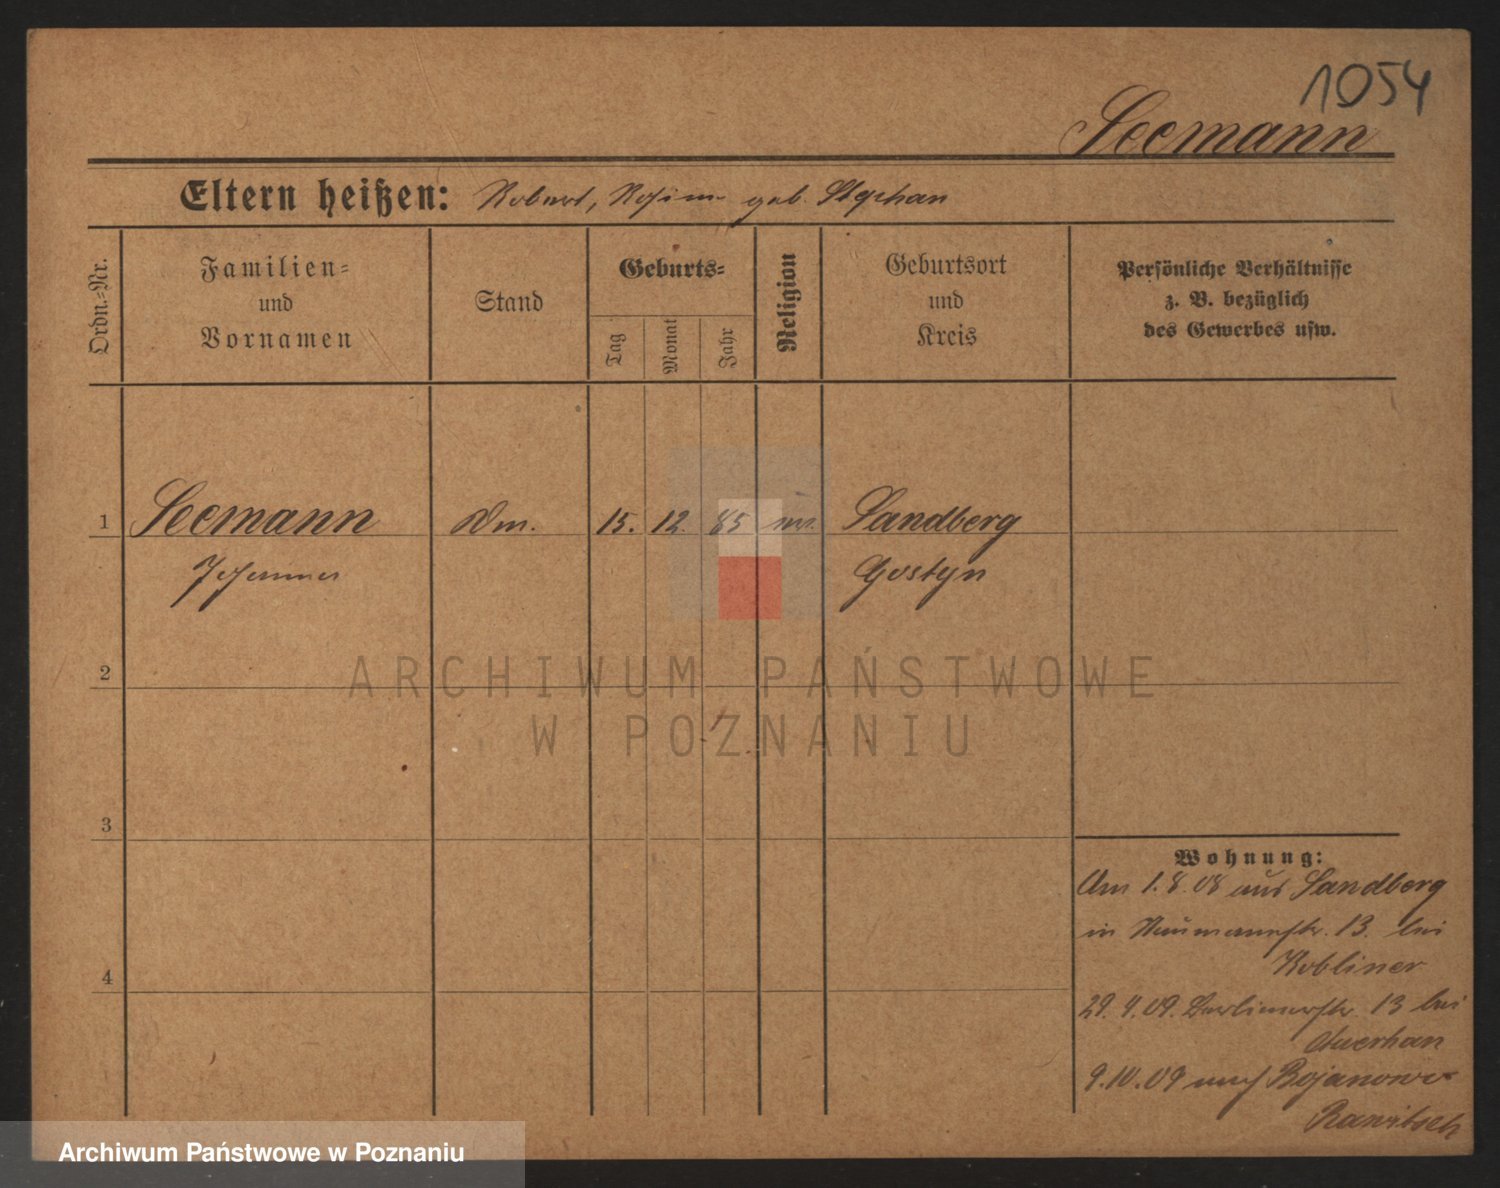 1054
Seemann
Eltern heißen: Robert, Rosina geb. Stephan
Ordn.-Nr.
Familien-
und
Vornamen
Stand
Geburts-
Tag
Monat
Jahr
Religion
Geburtsort
und
Kreis
Persönliche Verhältnisse
z. B. bezüglich
des Gewerbes usw.
1 Seemann 15. 12. 85 Sandberg
Gostyn
2
3
4
Wohnung:
Am 1.8.08 aus Sandberg
in Naumannstr. 13. bei
Kobliner
29.9.09. Berlinerstr. 13 bei
Auerhan
9.10.09 nach Bojanowo
Rawitsch
ARCHIWUM PAŃSTWOWE
W POZNANIU
Archiwum Państwowe w Poznaniu